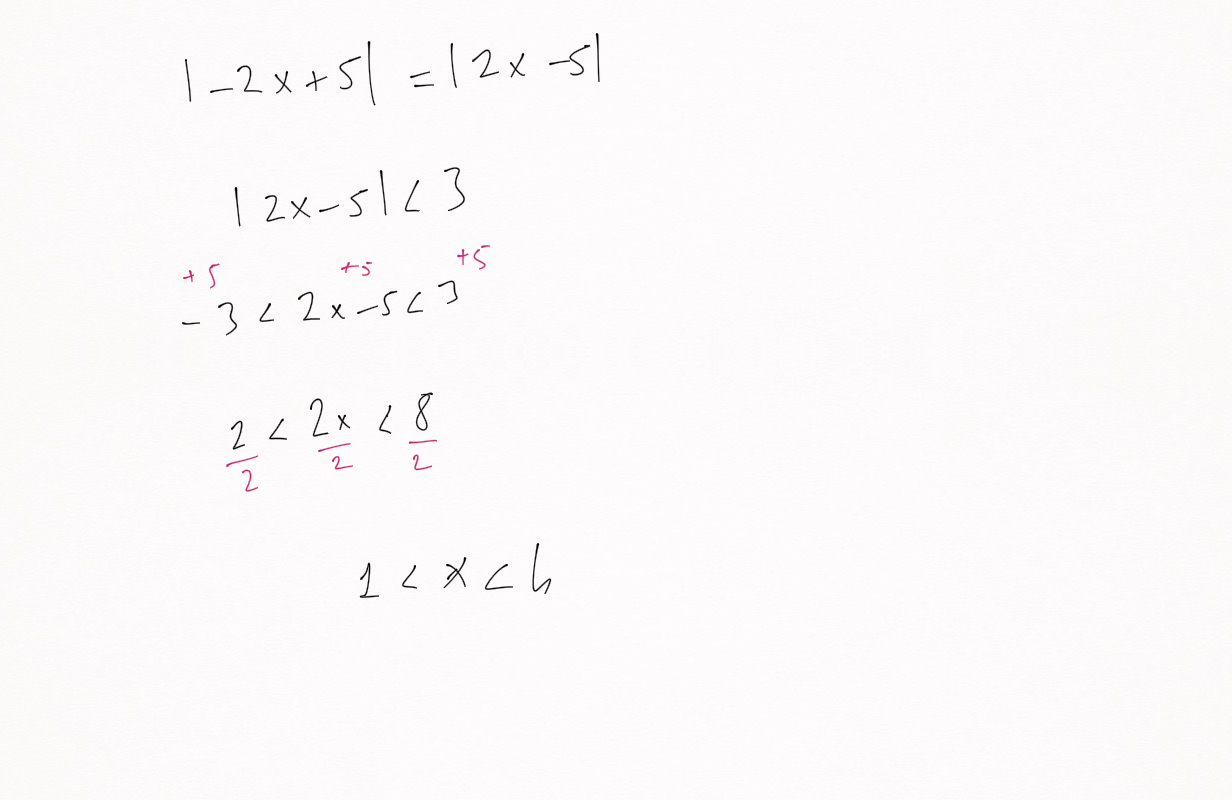 |-2x+5| = |2x-5|
|2x-5| < 3
+5 +5 +5
-3 < 2x-5 < 3
2 < 2x < 8
2 2 2
1 < x < 4